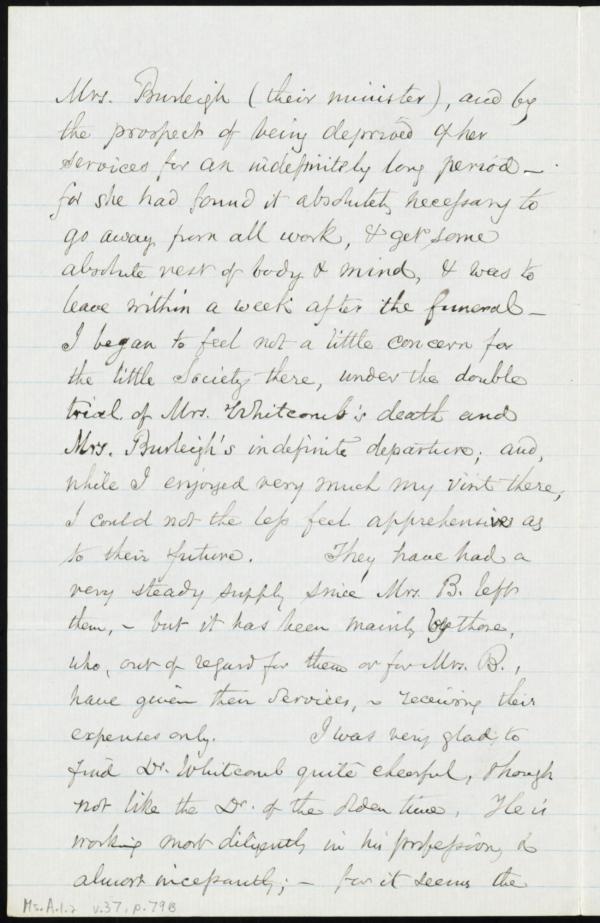 Mrs. Burleigh (their minister), and by
the prospect of being deprived of her
services for an indefinitely long period –
for she had found it absolutely necessary to
go away from all work, & get some
absolute rest of body & mind, & was to
leave within a week after the funeral –
I began to feel not a little concern for
the little Society there, under the double
trial of Mrs. Whitcomb's death and
Mrs. Burleigh's indefinite departure; and,
while I enjoyed very much my visit there,
I could not the less feel apprehensive as
to their future. They have had a
very steady supply since Mrs. B. left
them, – but it has been mainly by those,
who, out of regard for them or for Mrs. B.,
have given their services, – receiving their
expenses only. I was very glad to
find Dr. Whitcomb quite cheerful, though
not like the Dr. of the olden time. He is
working most diligently in his profession, &
almost incessantly; – for it seems the
Ms. A. 1. 2 v. 37, p. 79B